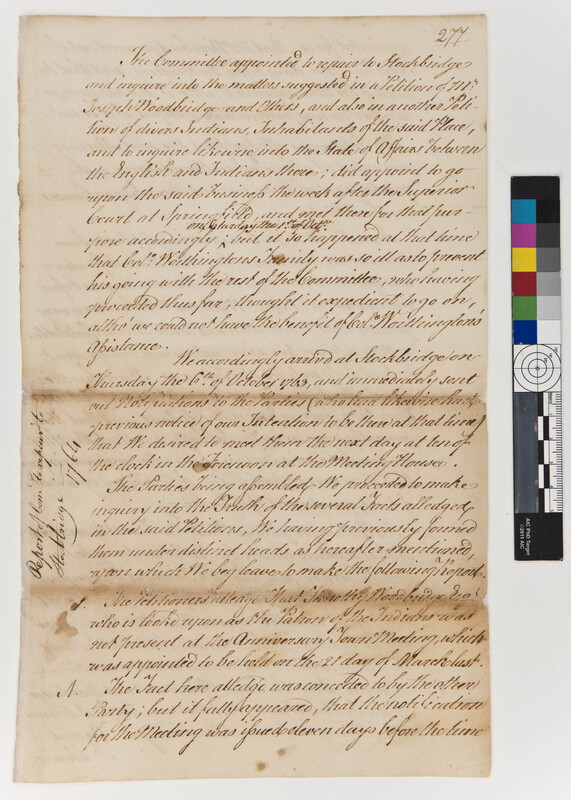 277
The Committee appointed to repair to Stockbridge
and inquire into the matters suggested in a Petition of Mr.
Joseph Woodbridge and Others, and also in another Peti-
tion of divers Indians, Inhabitants of the said Place,
and to inquire likewise into the State of Affairs between
the English and Indians there; did appoint to go
upon the said Business the week after the Superior
Court at Springfield, and met there for that pur-
pose accordingly; but it so happened at that time
that Colo. Worthingtons Family was so ill as to prevent
his going with the rest of the Committee, who having
proceeded thus far, thought it expedient to go on,
altho' we could not have the benefit of Colo. Worthington's
Assistance.
We accordingly arriv'd at Stockbridge on
Thursday the 6th. of October 1763, and immediately sent
out Notifications to the Parties (who had likewise had
previous notice of our Intention to be there at that time)
that We desired to meet them the next day at ten of
the clock in the Forenoon at the Meeting House.
The Parties being assembled, We proceeded to make
inquiry into the Truth of the several Facts alledged
in the said Petitions, We having previously formed
them under distinct heads as hereafter mentioned,
upon which We beg leave to make the following Report.
1. The Petitioners alledge That Timothy Woodbridge Esqr.
who is look'd upon as the Patron of the Indians was
not present at the Anniversary Town Meeting, which
was appointed to be held on the 21 day of March last.
A. The Fact here alledged was conceded to by the other
Party; but it fully appeared, that the notification
for the Meeting was issued eleven days before the time
Report of Comtee to repair to
Stockbridge 1764
AIC PhD Target
©2011 AIC